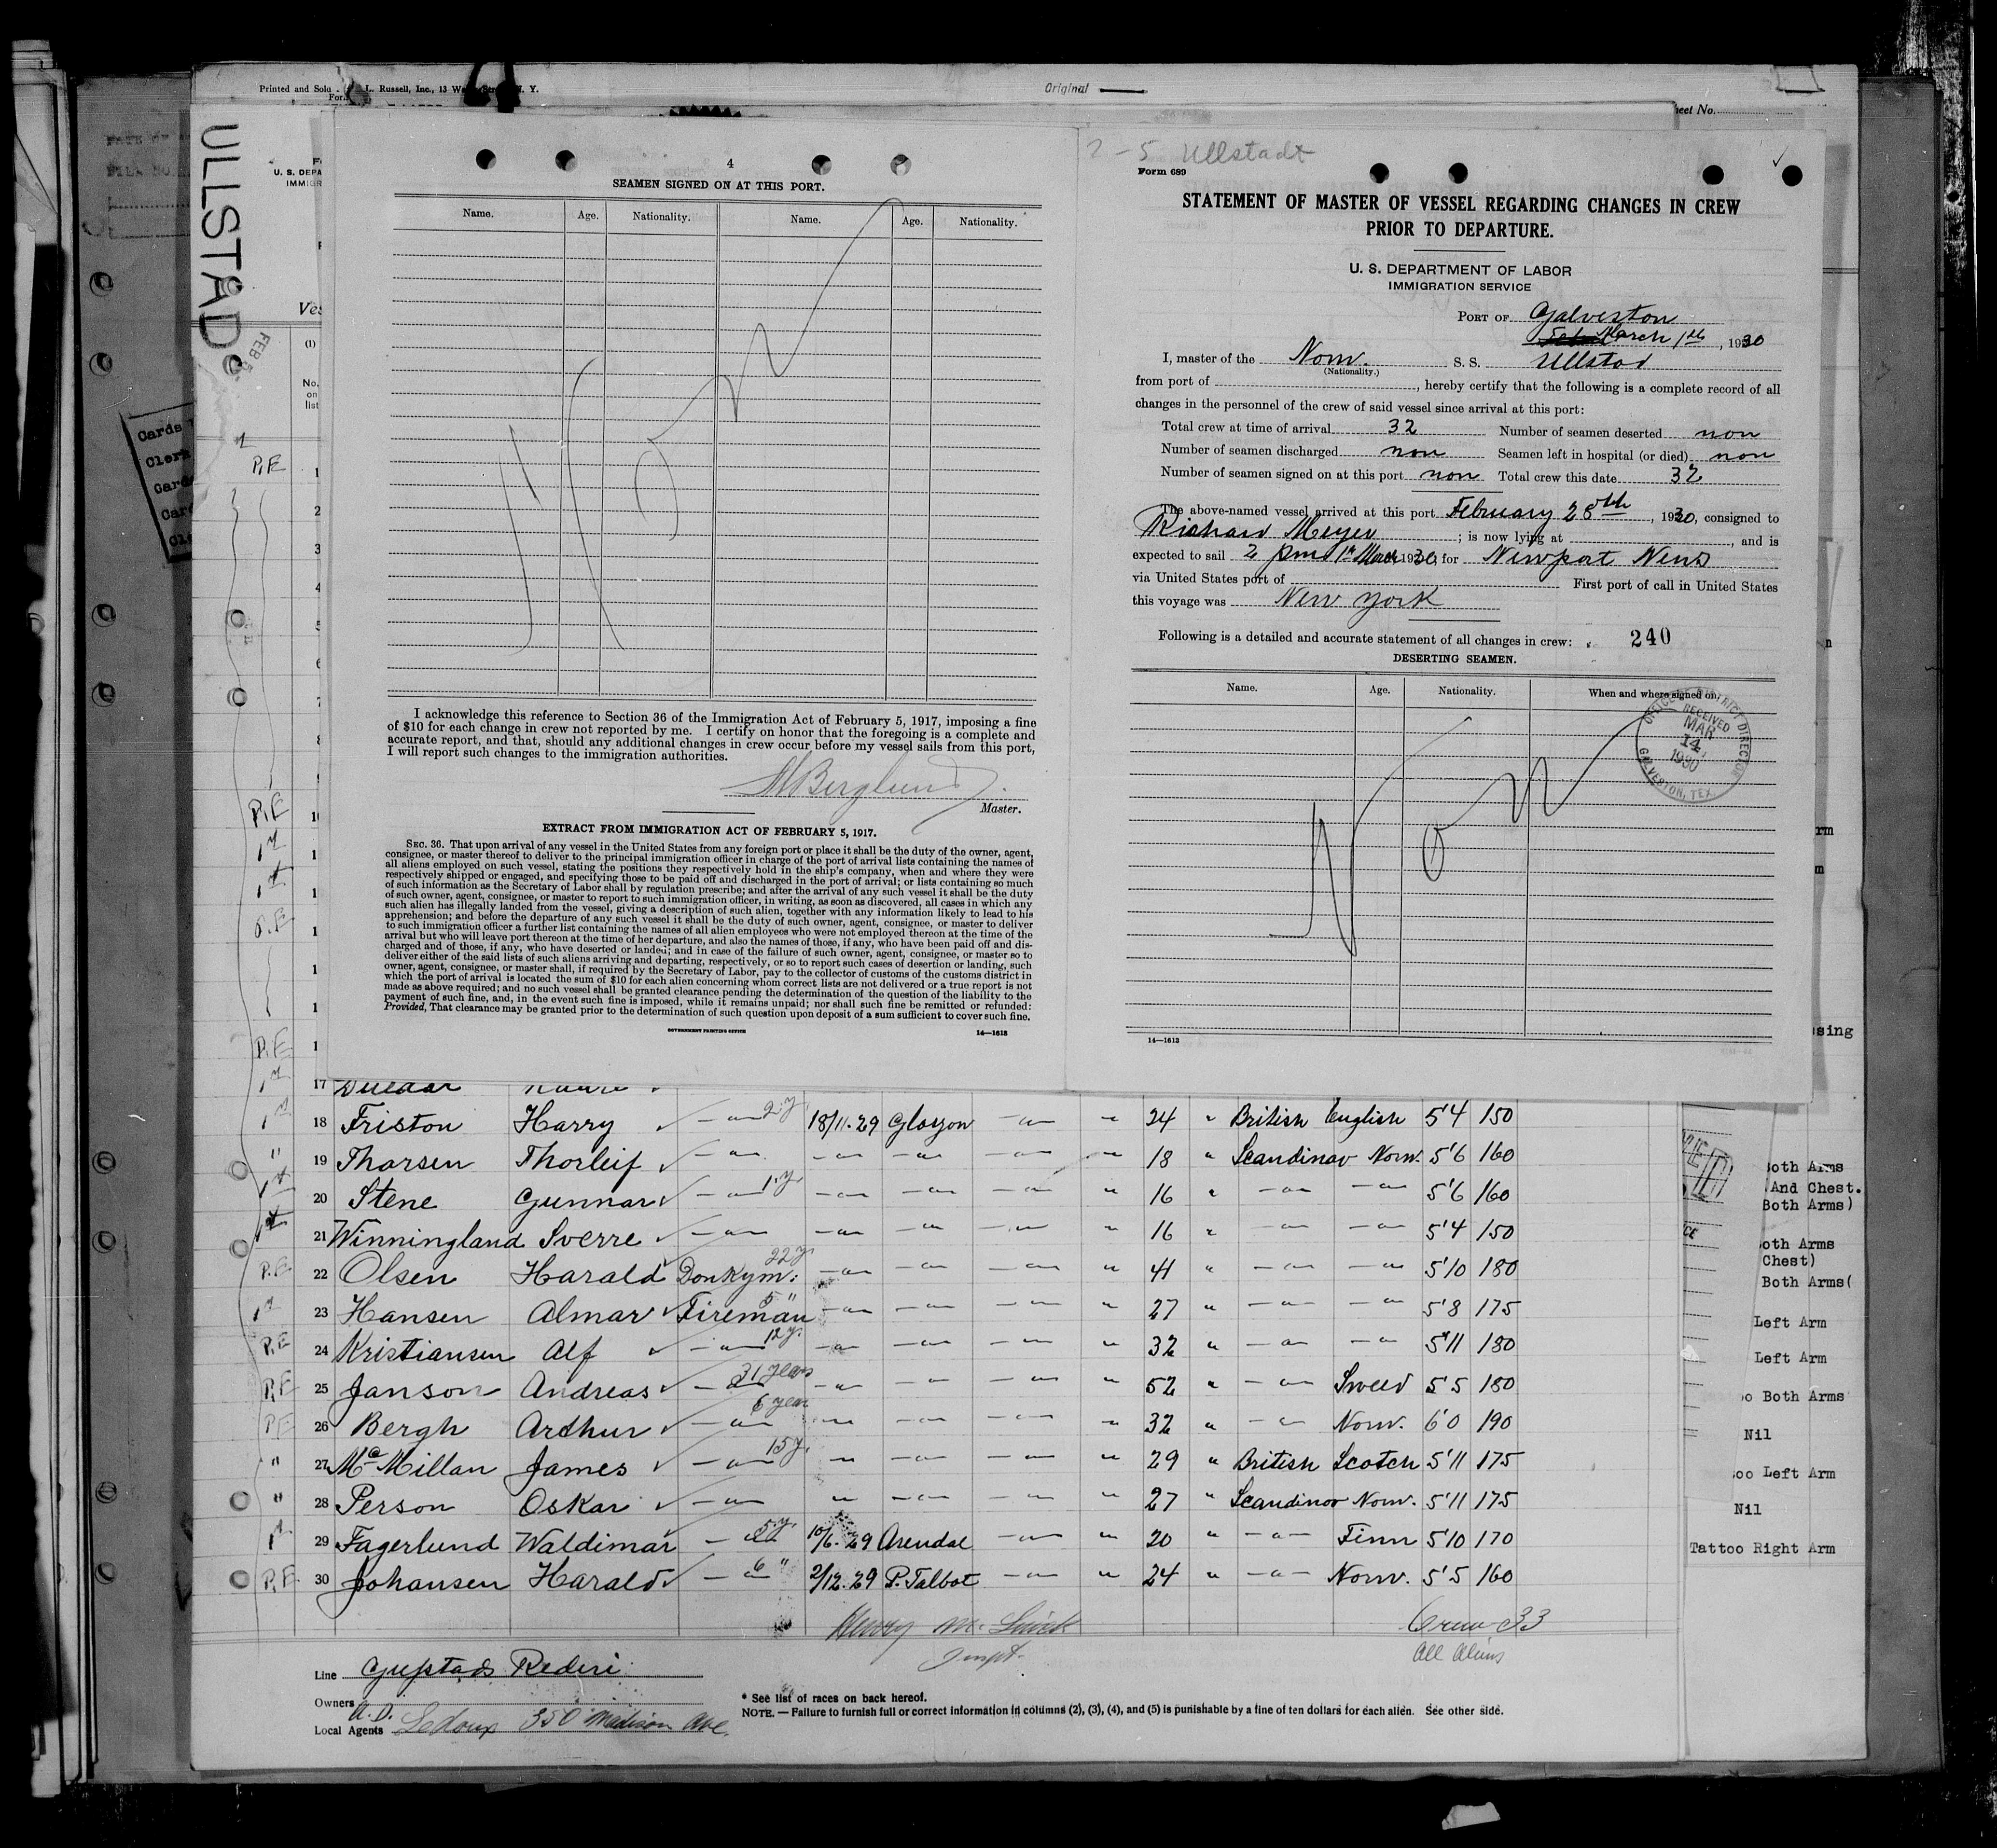 Printed and Sold L. Russell, Inc., 13 Wa Str N. Y.
Form
Original
Sheet No.
ULLSTAD
FEB 5
U. S. DEPA
IMMIGR
Ves
(1)
No.
on
list
Cards
Clerk
Card
Car
4
SEAMEN SIGNED ON AT THIS PORT.
Name. Age. Nationality. Name. Age. Nationality.
Non
I acknowledge this reference to Section 36 of the Immigration Act of February 5, 1917, imposing a fine
of $10 for each change in crew not reported by me. I certify on honor that the foregoing is a complete and
accurate report, and that, should any additional changes in crew occur before my vessel sails from this port,
I will report such changes to the immigration authorities.
Berglund
Master.
EXTRACT FROM IMMIGRATION ACT OF FEBRUARY 5, 1917.
SEC. 36. That upon arrival of any vessel in the United States from any foreign port or place it shall be the duty of the owner, agent,
consignee, or master thereof to deliver to the principal immigration officer in charge of the port of arrival lists containing the names of
all aliens employed on such vessel, stating the positions they respectively hold in the ship's company, when and where they were
respectively shipped or engaged, and specifying those to be paid off and discharged in the port of arrival; or lists containing so much
of such information as the Secretary of Labor shall by regulation prescribe; and after the arrival of any such vessel it shall be the duty
of such owner, agent, consignee, or master to report to such immigration officer, in writing, as soon as discovered, all cases in which any
such alien has illegally landed from the vessel, giving a description of such alien, together with any information likely to lead to his
apprehension; and before the departure of any such vessel it shall be the duty of such owner, agent, consignee, or master to deliver
to such immigration officer a further list containing the names of all alien employees who were not employed thereon at the time of the
arrival but who will leave port thereon at the time of her departure, and also the names of those, if any, who have been paid off and dis-
charged and of those, if any, who have deserted or landed; and in case of the failure of such owner, agent, consignee, or master so to
deliver either of the said lists of such aliens arriving and departing, respectively, or so to report such cases of desertion or landing, such
owner, agent, consignee, or master shall, if required by the Secretary of Labor, pay to the collector of customs of the customs district in
which the port of arrival is located the sum of $10 for each alien concerning whom correct lists are not delivered or a true report is not
made as above required; and no such vessel shall be granted clearance pending the determination of the question of the liability to the
payment of such fine, and, in the event such fine is imposed, while it remains unpaid; nor shall such fine be remitted or refunded:
Provided, That clearance may be granted prior to the determination of such question upon deposit of a sum sufficient to cover such fine.
GOVERNMENT PRINTING OFFICE 14—1613
2 - 5 Ullstadt
Form 689
STATEMENT OF MASTER OF VESSEL REGARDING CHANGES IN CREW
PRIOR TO DEPARTURE.
U. S. DEPARTMENT OF LABOR
IMMIGRATION SERVICE
PORT OF Galveston
March 1st, 1930
I, master of the Norw. S. S. Ullstad
(Nationality.)
from port of , hereby certify that the following is a complete record of all
changes in the personnel of the crew of said vessel since arrival at this port:
Total crew at time of arrival 32 Number of seamen deserted non
Number of seamen discharged non Seamen left in hospital (or died) non
Number of seamen signed on at this port non Total crew this date 32
The above-named vessel arrived at this port February 28th, 1930, consigned to
Richard Meyer ; is now lying at , and is
expected to sail 2 pm 1st March 1930, for Newport News
via United States port of First port of call in United States
this voyage was New York
Following is a detailed and accurate statement of all changes in crew: 240
DESERTING SEAMEN.
Name. Age. Nationality. When and where signed on.
Non
OFFICE DISTRICT DIRECTOR
RECEIVED
MAR
14
1930
GALVESTON, TEX.
14—1613
17
18 Friston Harry 2 y 18/11-29 Glasgow 24 " British English 5'4 150
19 Thorsen Thorleif 18 " Scandinav Norw. 5'6 160
20 Stene Gunnar 1 y 16 " 5'6 160
21 Winningland Sverre 16 " 5'4 150
22 Olsen Harald Donkym. 22 y 41 " 5'10 180
23 Hansen Almar Fireman 5 " 27 " 5'8 175
24 Kristiansen Alf 12 y. 32 " 5'11 180
25 Janson Andreas 31 years 52 " Sweed 5'5 180
26 Bergh Arthur 6 year 32 " Norw. 6'0 190
27 McMillan James 15 y. 29 " British Scotch 5'11 175
28 Person Oskar 27 " Scandinav Norw. 5'11 175
29 Fagerlund Waldimar 5 y. 10/6-29 Arendal 20 " Finn 5'10 170
30 Johansen Harald 6 " 2/12-29 P. Talbot 24 " Norw. 5'5 160
Crew 33
All Aliens
Henry M.
Inspt.
Line Rederi
Owners
Local Agents A. D. Ledoux 350 Madison Ave.
* See list of races on back hereof.
NOTE. — Failure to furnish full or correct information in columns (2), (3), (4), and (5) is punishable by a fine of ten dollars for each alien. See other side.
sing
oth Arms
And Chest.
Both Arms)
oth Arms
Chest)
Both Arms(
Left Arm
Left Arm
o Both Arms
Nil
oo Left Arm
Nil
Tattoo Right Arm